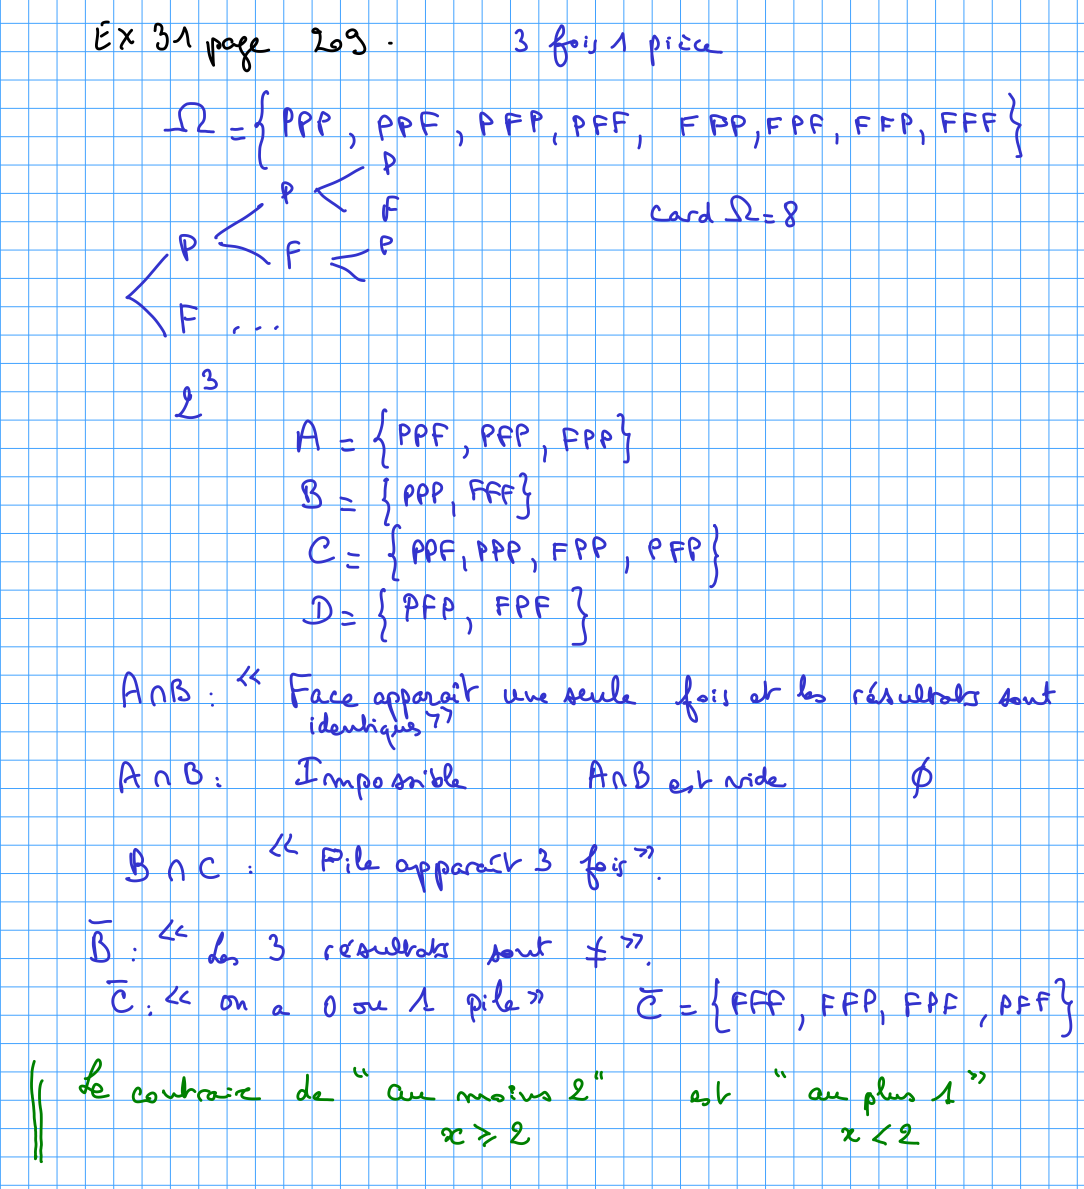 Ex 31 page 209. 3 fois 1 pièce
Ω = { PPP, PPF, PFP, PFF, FPP, FPF, FFP, FFF }
P
P
F
card Ω = 8
P
F
P
F ...
2³
A = { PPF, PFP, FPP }
B = { PPP, FFF }
C = { PPF, PPP, FPP, PFP }
D = { PFP, FPF }
A∩B : << Face apparaît une seule fois et les résultats sont
identiques >>
A∩B : Impossible A∩B est vide ∅
B∩C : << Pile apparaît 3 fois >>.
B̅ : << Les 3 résultats sont ≠ >>.
C̅ : << on a 0 ou 1 pile >> C̅ = { FFF, FFP, FPF, PFF }
Le contraire de "au moins 2" est "au plus 1"
x ⩾ 2 x < 2